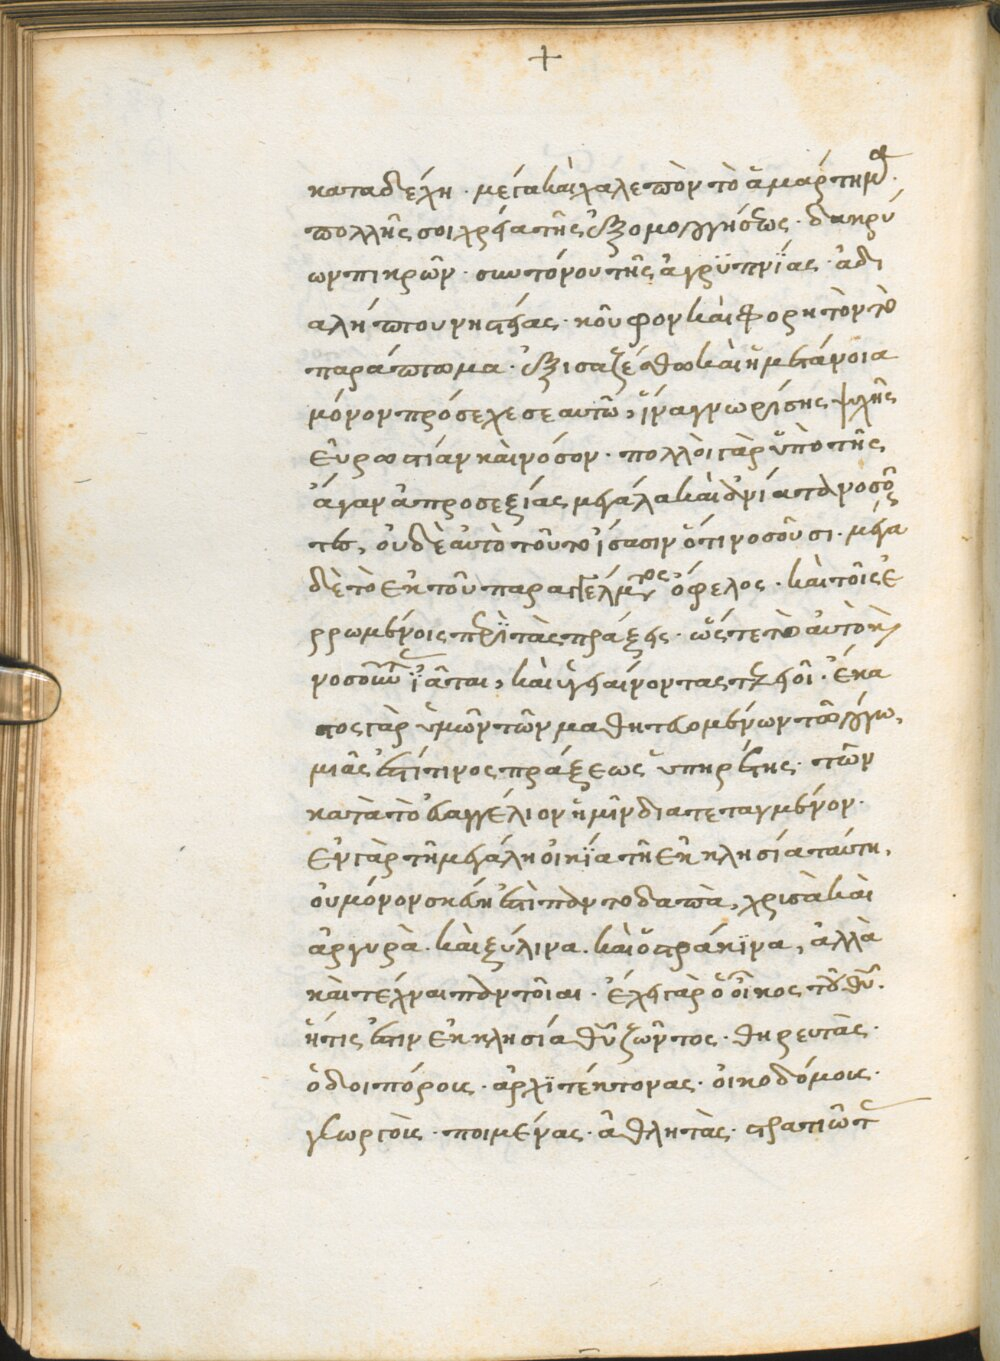 +
καταδέχη· μέγα καὶ χαλεπὸν τὸ ἁμάρτημα·
πολλῆς σοι χρεία τῆς ἐξομολογήσεως· δακρύ
ων πικρῶν· συντόνου τῆς ἀγρϋπνΐας· ἀδι
αλήπτου νηστείας· κοῦφον καὶ φορητὸν τὸ
παράπτωμα· ἐξισαζέσθω καὶ ἡ μετάνοια
μόνον πρόσεχε σεαυτῶ, ἵνα γνωρίσης ψυχῆς
εὐρωστίαν καὶ νόσον· πολλοὶ γὰρ ὑπὸ τῆς
ἄγαν ἀπροσεξίας μεγάλα καὶ ἀνίατα νοσοῦν
τες, οὐδὲ αὐτὸ τοῦτο ἴσασιν ὅτι νοσοῦσι· μέγα
δὲ τὸ ἐκ τοῦ παραγγέλματος ὄφελος· καὶ τοῖς ἐ
ρρωμένοις περὶ τὰς πράξεις· ὥστε τὸ αὐτὸ καὶ
νοσοῦντας ἰᾶται, καὶ ὑγιαίνοντας τελειοῖ· ἕκα
στος γὰρ ἡμῶν τῶν μαθητευομένων τῶ λόγω,
μιᾶς ἐστί τινος πράξεως ὑπηρέτης· τῶν
κατὰ τὸ εὐαγγέλιον ἡμῖν διατεταγμένον·
ἐν γὰρ τῆ μεγάλη οἰκΐα τῆ ἐκκλησία ταύτη,
οὐ μόνον σκεύη ἐστὶ παντοδαπὰ, χρισὰ καὶ
ἀργυρὰ· καὶ ξύλινα· καὶ ὀστράκϊνα, ἀλλὰ
καὶ τέχναι παντοῖαι· ἔχει γὰρ ὁ οἶκος τοῦ θυ̅·
ἥτις ἐστὶν ἐκκλησία θυ̅ ζῶντος· θηρευτὰς·
ὁδοιπόροις· ἀρχϊτέκτονας· οἰκοδόμοις·
γεωργοὶς· ποιμένας· ἀθλητὰς· στρατιώτας